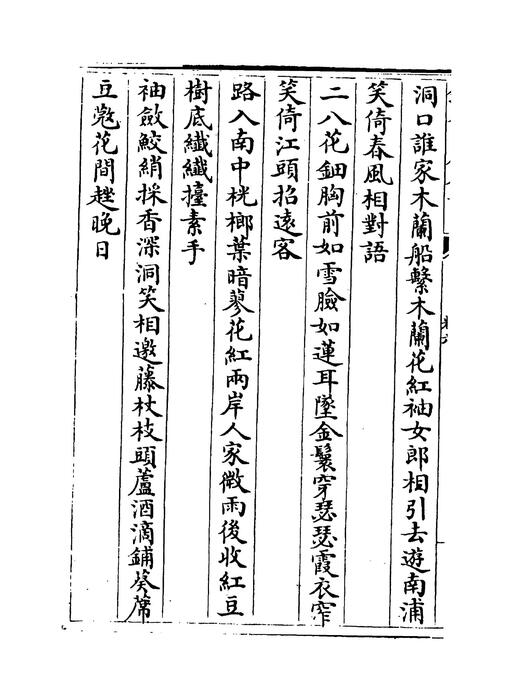 洞口誰家木蘭船繫木蘭花紅袖女郎相引去遊南浦
笑倚春風相對語
二八花鈿胸前如雪臉如蓮耳墜金鬟穿瑟瑟霞衣窄
笑倚江頭招遠客
路入南中桄榔葉暗蓼花紅兩岸人家微雨後收紅豆
樹底纖纖擡素手
袖斂鮫綃採香深洞笑相邀藤杖枝頭蘆酒滴鋪葵席
豆蔻花間趖晚日